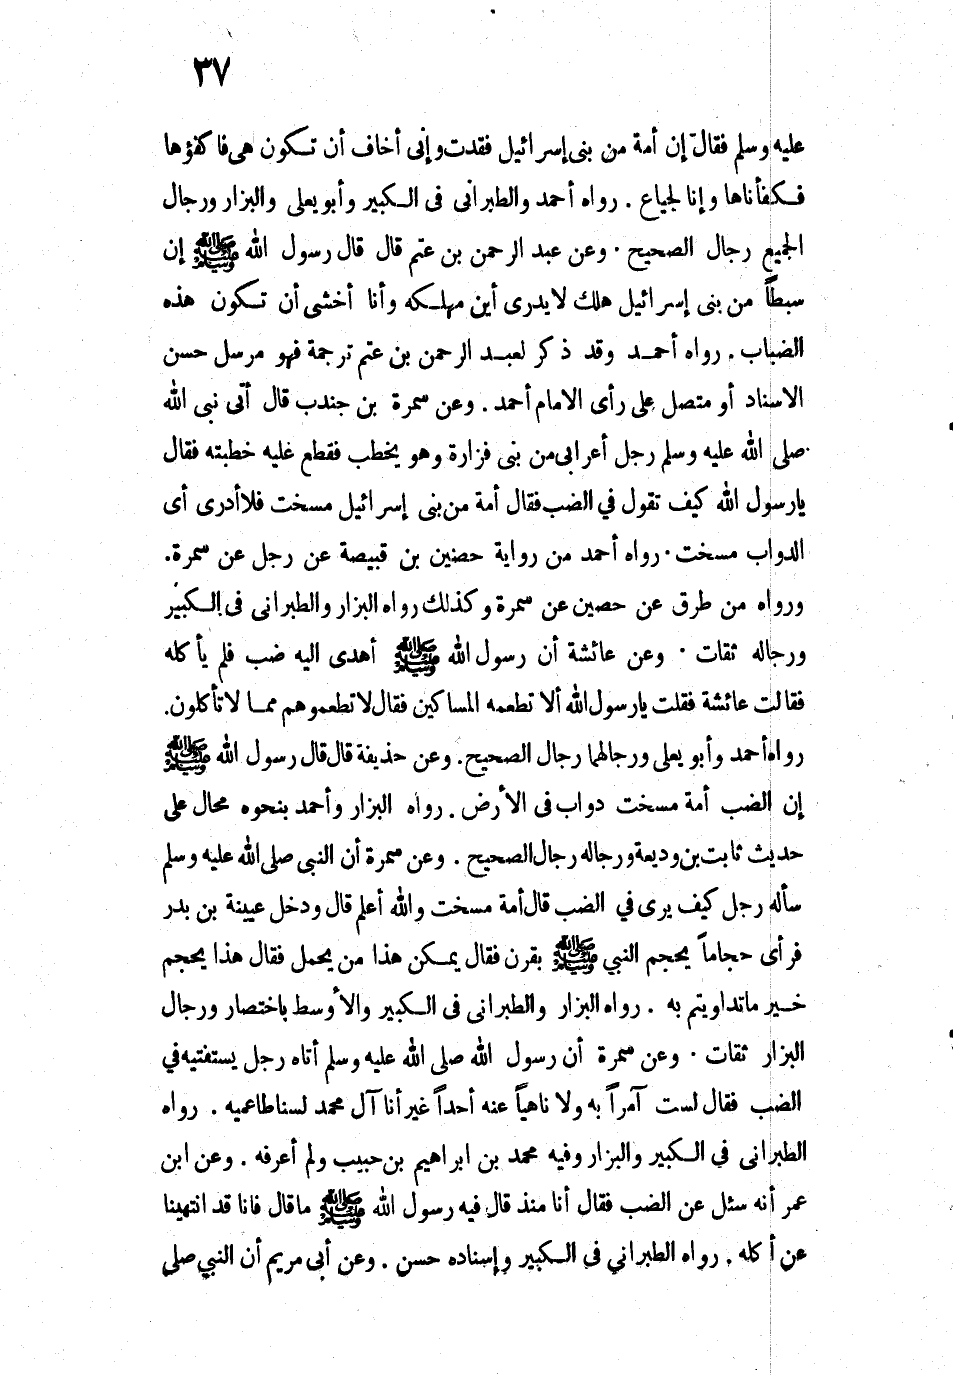 ٣٧
عليه وسلم فقال إن أمة من بنى إسرائيل فقدت وإنى أخاف أن تكون هى فا كفؤها
فكفأناها وإنا لجياع . رواه أحمد والطبرانى فى الكبير وأبو يعلى والبزار ورجال
الجميع رجال الصحيح . وعن عبد الرحمن بن غنم قال قال رسول الله ﷺ إن
سبطاً من بنى إسرائيل هلك لا يدرى أين مهلكه وأنا أخشى أن تكون هذه
الضباب . رواه أحمد وقد ذكر لعبد الرحمن بن غنم ترجمة فهو مرسل حسن
الاسناد أو متصل على رأى الامام أحمد . وعن سمرة بن جندب قال أتى نبى الله
صلى الله عليه وسلم رجل أعرابى من بنى فزارة وهو يخطب فقطع عليه خطبته فقال
يارسول الله كيف تقول في الضب فقال أمة من بنى إسرائيل مسخت فلا أدرى أى
الدواب مسخت . رواه أحمد من رواية حصين بن قبيصة عن رجل عن سمرة .
ورواه من طرق عن حصين عن سمرة وكذلك رواه البزار والطبرانى فى الكبير
ورجاله ثقات . وعن عائشة أن رسول الله ﷺ أهدى اليه ضب فلم يأكله
فقالت عائشة فقلت يارسول الله ألا تطعمه المساكين فقال لا تطعموهم مما لا تأكلون .
رواه أحمد وأبو يعلى ورجالهما رجال الصحيح . وعن حذيفة قال قال رسول الله ﷺ
إن الضب أمة مسخت دواب فى الأرض . رواه البزار وأحمد بنحوه محال على
حديث ثابت بن وديعة ورجاله رجال الصحيح . وعن سمرة أن النبى صلى الله عليه وسلم
سأله رجل كيف يرى في الضب قال أمة مسخت والله أعلم قال ودخل عيينة بن بدر
فرأى حجاماً يحجم النبي ﷺ بقرن فقال يمكن هذا من يحمل فقال هذا يحجم
خير ماتداويتم به . رواه البزار والطبرانى فى الكبير والأوسط باختصار ورجال
البزار ثقات . وعن سمرة أن رسول الله صلى الله عليه وسلم أتاه رجل يستفتيه في
الضب فقال لست آمراً به ولا ناهياً عنه أحداً غير أنا آل محمد لسنا طاعميه . رواه
الطبرانى في الكبير والبزار وفيه محمد بن ابراهيم بن حبيب ولم أعرفه . وعن ابن
عمر أنه سئل عن الضب فقال أنا منذ قال فيه رسول الله ﷺ ماقال فانا قد انتهينا
عن أكله . رواه الطبراني فى الكبير وإسناده حسن . وعن أبى مريم أن النبي صلى